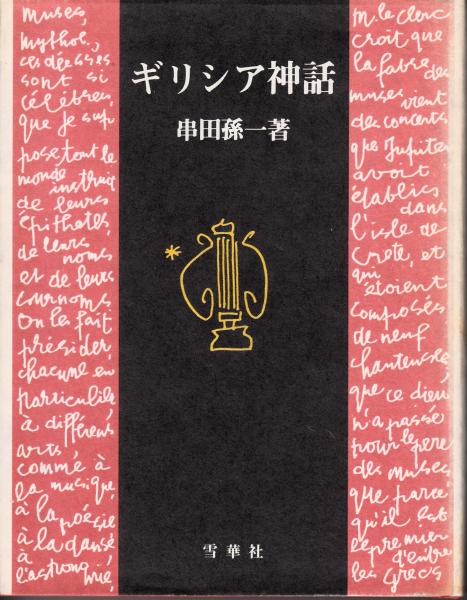 ギリシア神話
串田孫一著
雪華社
muses,
mythol.,
ces déesses
sont si
célèbres,
que je sup
pose tout le
monde instruit
de leurs
épithetes,
de leurs noms
et de leurs
surnoms
On les fait
présider,
chacune en
particulier,
à différens
arts,
comme à
la musique,
à la poésie
à la danse
à l'astrono.. mie,
M. le Clerc
croit que
la fable des
muses vient
des concerts
que Jupiter
avoit
établies
dans
l'isle de
Crete, et
qui
étoient
composés
de neuf
chanteuses
que ce dieu
n'a passé
pour le pere
des muses
que parce
qu'il est
le premier
d'entre
les Grecs